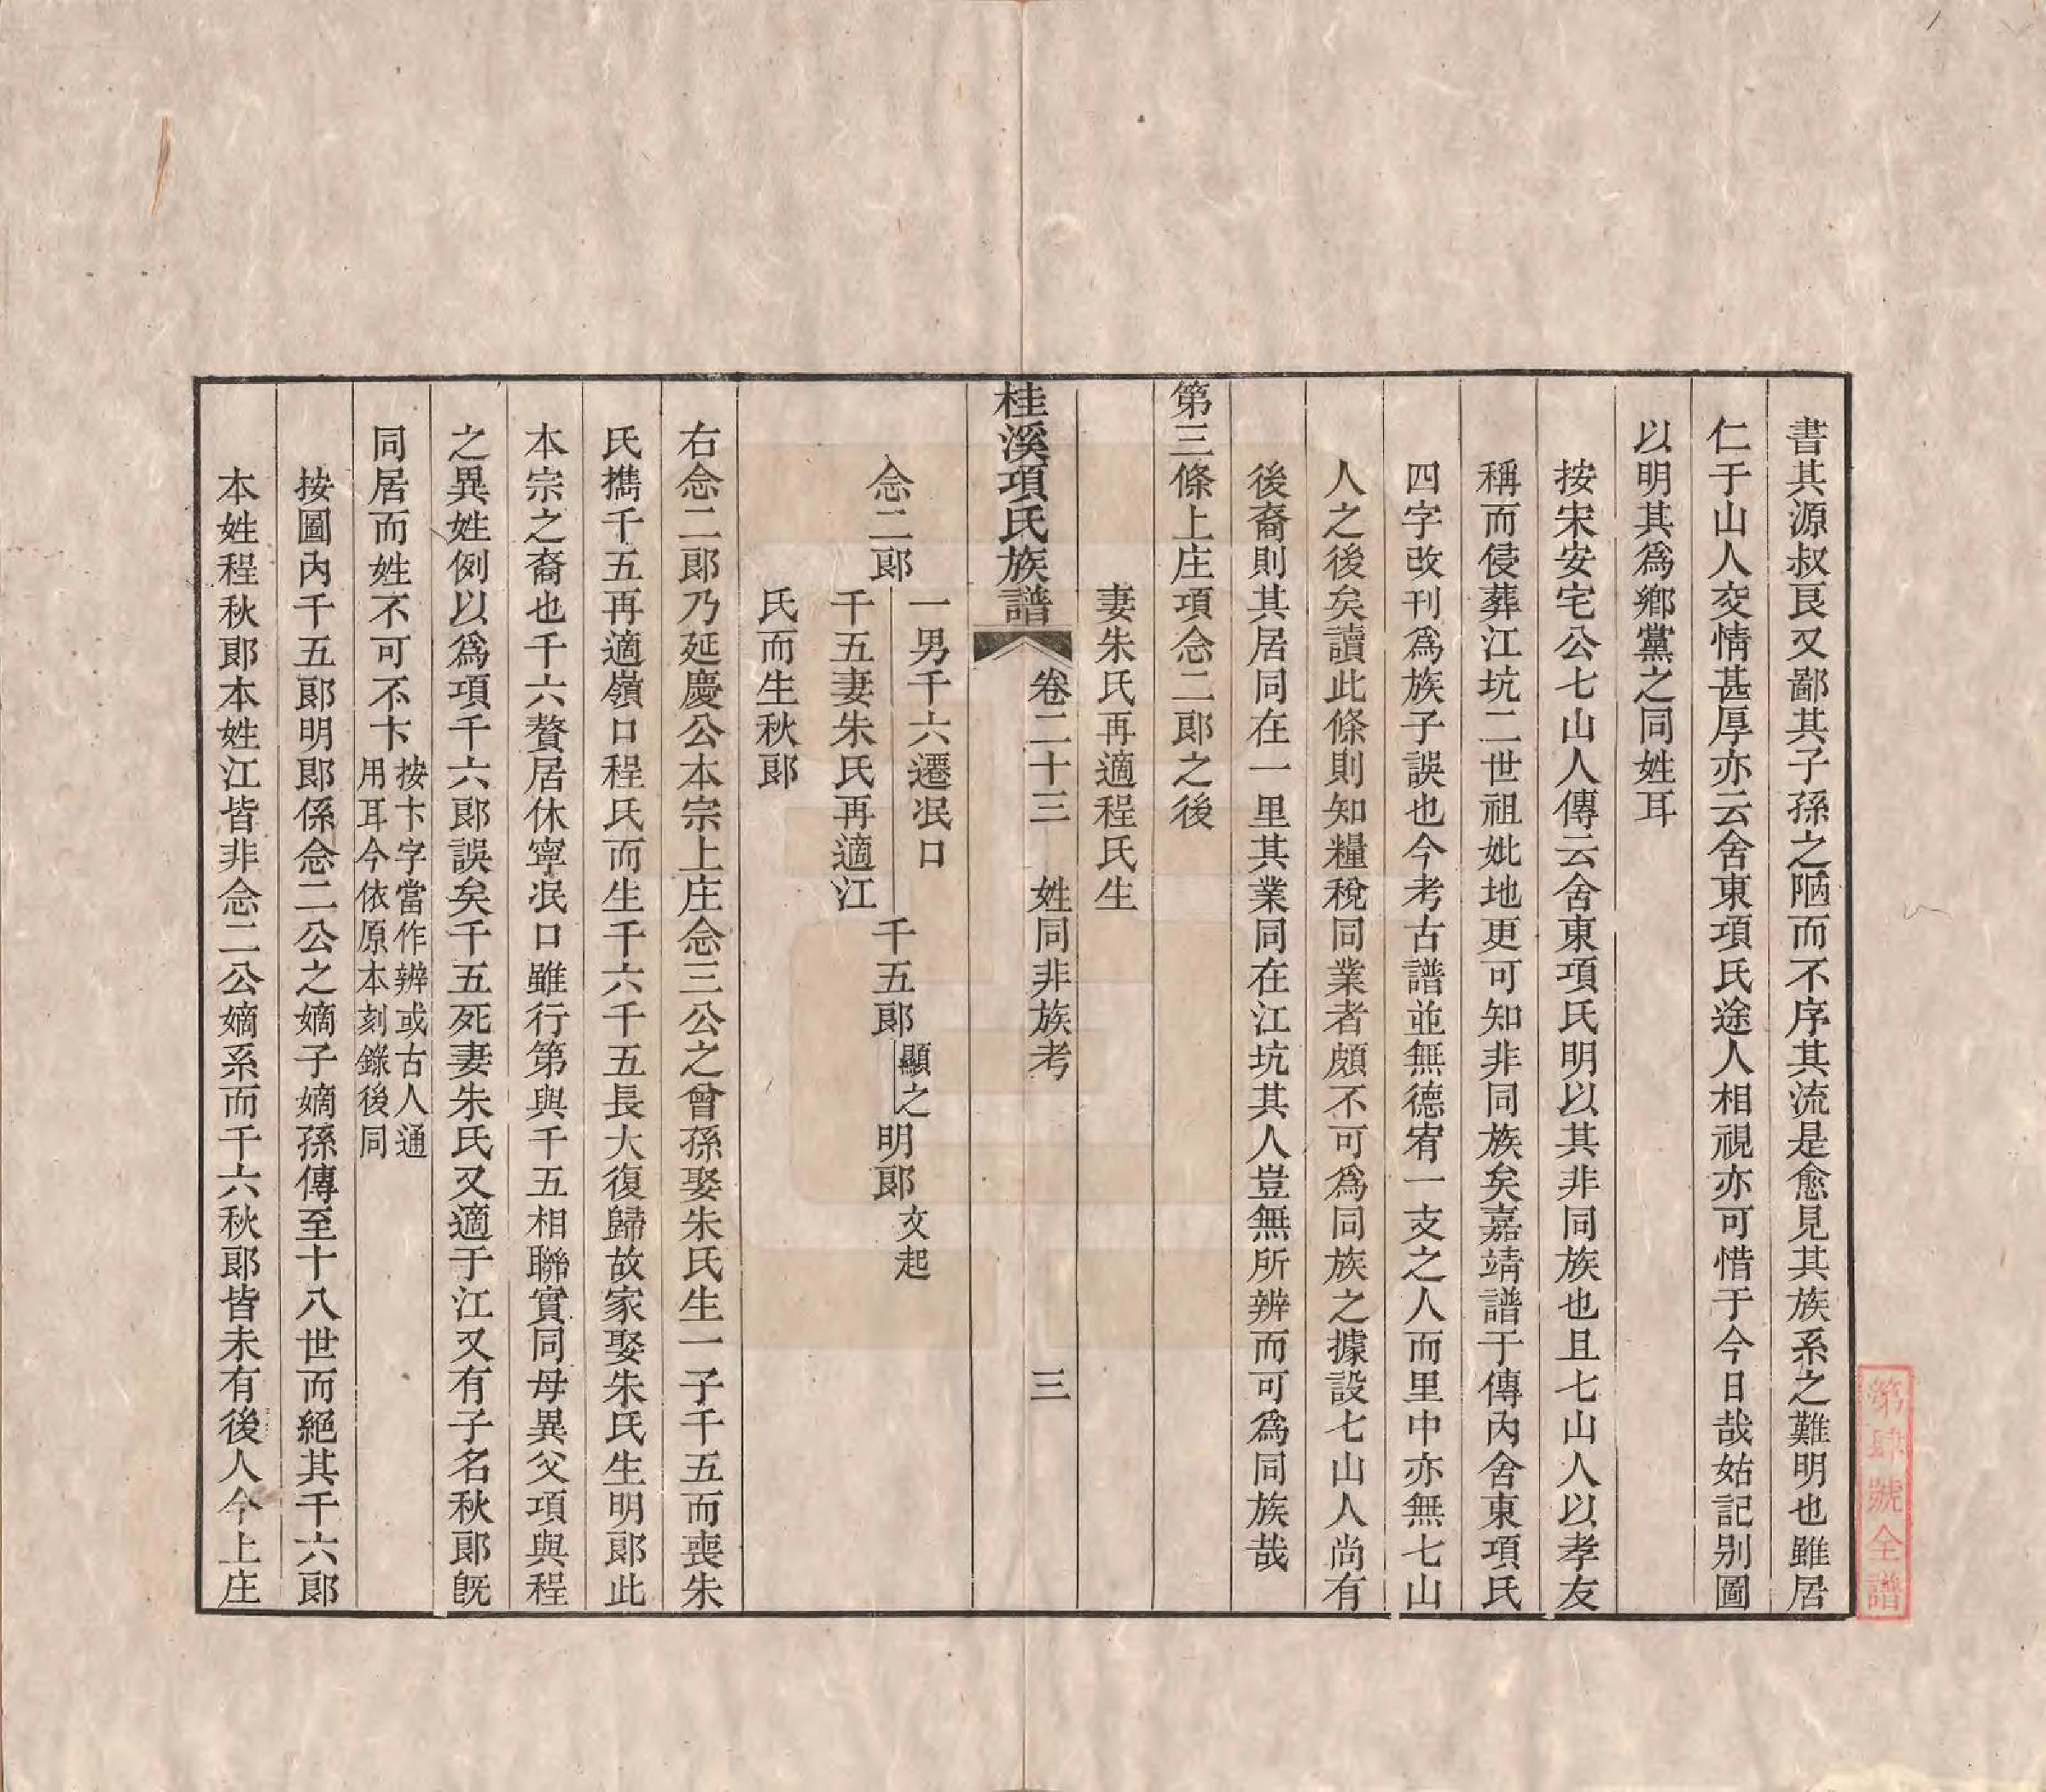 書其源叔艮又鄙其子孫之陋而不序其流是愈見其族系之難明也雖居
仁于山人交情甚厚亦云舍東項氏途人相視亦可惜于今日哉姑記別圖
以明其爲鄉黨之同姓耳
按宋安宅公七山人傳云舍東項氏明以其非同族也且七山人以孝友
稱而侵葬江坑二世祖妣地更可知非同族矣嘉靖譜于傳內舍東項氏
四字改刊爲族子誤也今考古譜並無德宥一支之人而里中亦無七山
人之後矣讀此條則知糧稅同業者頗不可爲同族之據設七山人尚有
後裔則其居同在一里其業同在江坑其人豈無所辨而可爲同族哉
第三條上庄項念二郎之後
妻朱氏再適程氏生
桂溪項氏族譜
卷二十三 姓同非族考 三
一男千六遷冺口
念二郎
千五妻朱氏再適江
氏而生秋郎
千五郎
顯之
明郎
文起
右念二郎乃延慶公本宗上庄念三公之曾孫娶朱氏生一子千五而喪朱
氏㩦千五再適嶺口程氏而生千六千五長大復歸故家娶朱氏生明郎此
本宗之裔也千六贅居休寧冺口雖行第與千五相聯實同母異父項與程
之異姓例以爲項千六郎誤矣千五死妻朱氏又適于江又有子名秋郎旣
同居而姓不可不卞
按卞字當作辨或古人通
用耳今依原本刻錄後同
按圖內千五郎明郎係念二公之嫡子嫡孫傳至十八世而絕其千六郎
本姓程秋郎本姓江皆非念二公嫡系而千六秋郎皆未有後人今上庄
第肆號全譜